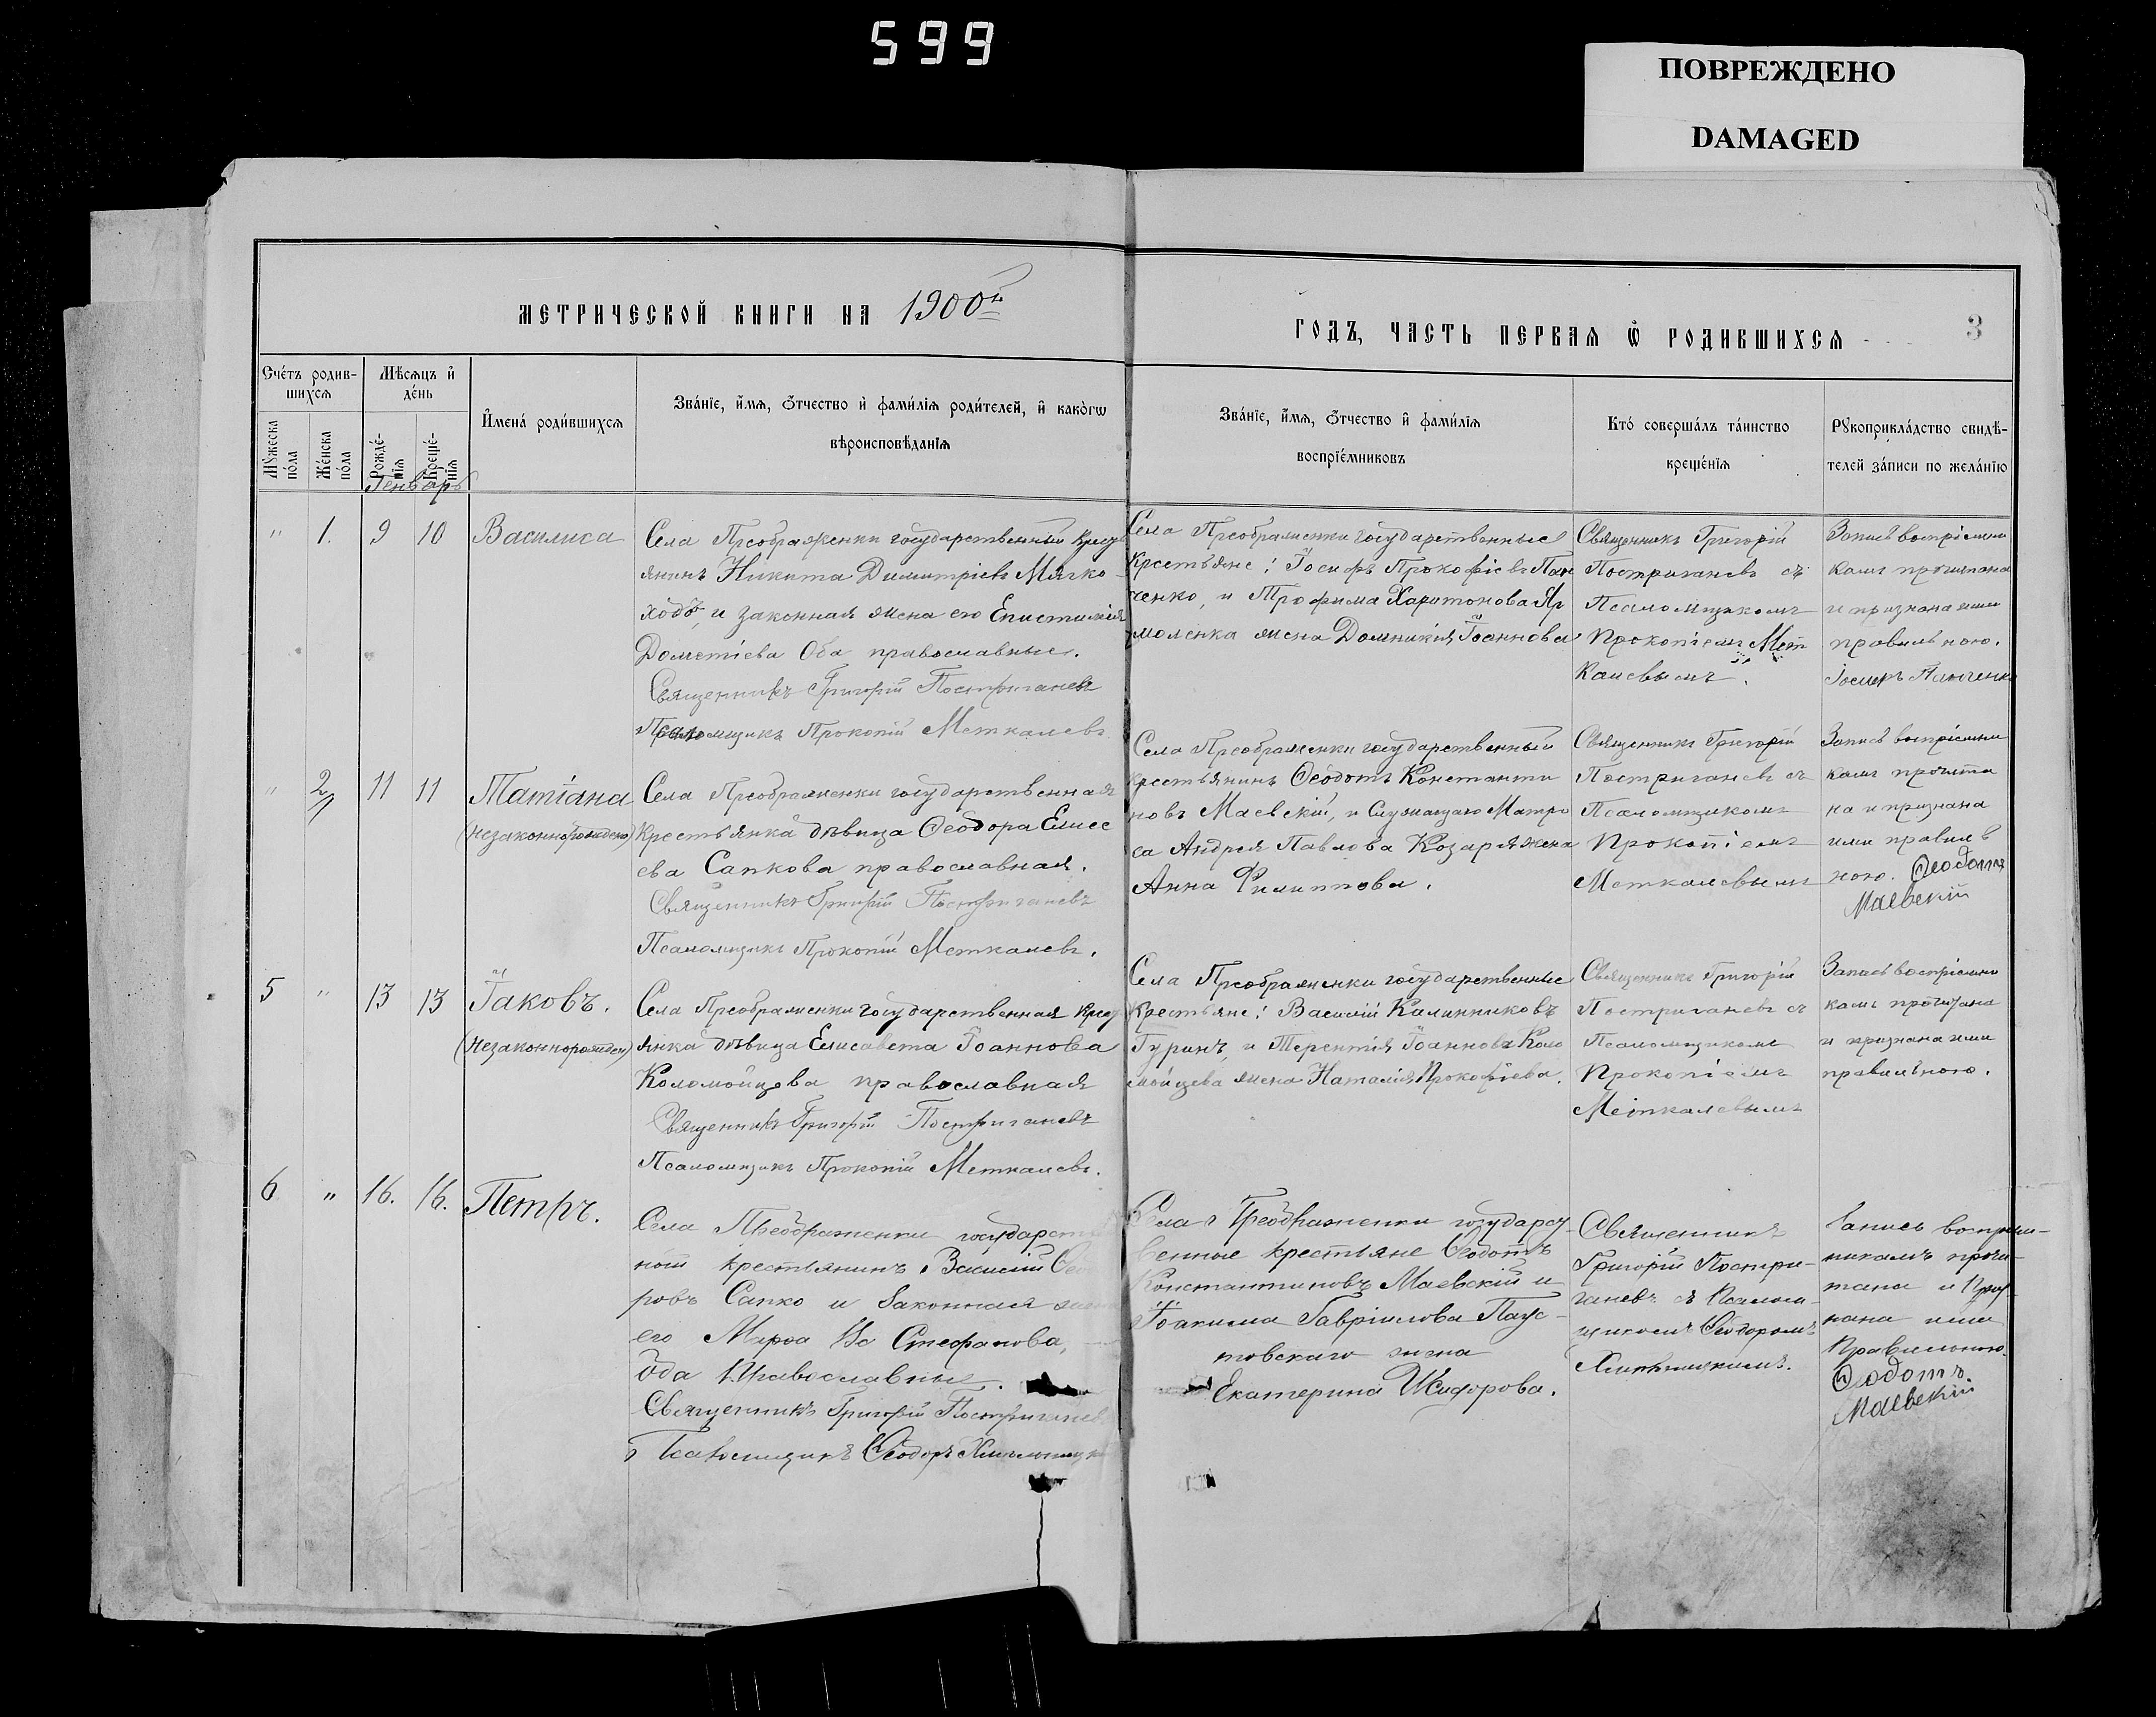 599
ПОВРЕЖДЕНО
DAMAGED
МЕТРИЧЕСКОЙ КНИГИ НА 1900й
ГОДЪ, ЧАСТЬ ПЕРВАЯ Ѡ РОДИВШИХСЯ
3
Счетъ родив-
шихся
Мѣсяцъ и
день
Мужеска
пола
Женска
пола
Рожде-
нія
Креще-
нія
Имена родившихся
Званіе, имя, отчество и фамилія родителей, и какогѡ
вѣроисповѣданія
Званіе, имя, отчество и фамилія
воспріемниковъ
Кто совершалъ таинство
крещенія
Рукоприкладство свидѣ-
телей записи по желанію
Генварь
" 1. 9 10 Василиса
Села Преображенки государственный крест
янинъ Никита Димитріевъ Мягко-
ходъ, и законная жена его Епистимія
Дометіева Оба православные.
Священникъ Григорій Постриганевъ
Псаломщикъ Прокопій Меткалевъ
Села Преображенки государственные
крестьяне: Іосифъ Прокофіевъ Пан
ченко, и Трофима Харитонова Яр
моленка жена Домникія Іоаннова
Священникъ Григорій
Постриганевъ съ
Псаломщикомъ
Прокопіемъ Мет
калевымъ.
Запись воспріемни
камъ прочитана
и признана ими
правильною.
Іосифъ Панченко
" 2 11 11 Татіана
(незаконнорожденно)
Села Преображенки государственная
крестьянка дѣвица Ѳеодора Елисе
ева Сапкова православная.
Священникъ Григорій Постриганевъ
Псаломщикъ Прокопій Меткалевъ.
Села Преображенки государственный
крестьянинъ Ѳеодотъ Константи
новъ Маевскій, и Служащаго Матро
са Андрея Павлова Козаря жена
Анна Филиппова.
Священникъ Григорій
Постриганевъ съ
Псаломщикомъ
Прокопіемъ
Меткалевымъ
Запись воспріемни
камъ прочита
на и признана
ими правиль
ною. Ѳеодотъ
Маевскій
5 " 13 13 Іаковъ.
(незаконнорожден)
Села Преображенки государственная крест
янка дѣвица Елисавета Іоаннова
Коломойцова православная
Священникъ Григорій Постриганевъ
Псаломщикъ Прокопій Меткалевъ.
Села Преображенки государственные
крестьяне: Василій Калинниковъ
Гуринъ, и Терентія Іоаннова Коло
мойцева жена Наталія Прокофіева.
Священникъ Григорій
Постриганевъ съ
Псаломщикомъ
Прокопіемъ
Меткалевымъ
Запись воспріемни
камъ прочитана
и признана ими
правильною.
6 " 16. 16. Петръ.
Села Преображенки государст
ной крестьянинъ Василій
ровъ Сапко и законная
его Марѳа Стефанова,
Оба Православные.
Священникъ Григорій Постриганев
Псаломщикъ Ѳеодоръ
Села Преображенки государст-
венные крестьяне Ѳеодотъ
Константиновъ Маевскій и
Іоакима Гавріилова Паус-
товскаго жена
Екатерина Исидорова.
Священникъ
Григорій Постри-
ганевъ съ Псалом-
щикомъ Ѳеодоромъ
Запись воспріем-
никамъ прочи-
тана и приз-
нана ими
Правильною.
Ѳеодотъ
Маевскій